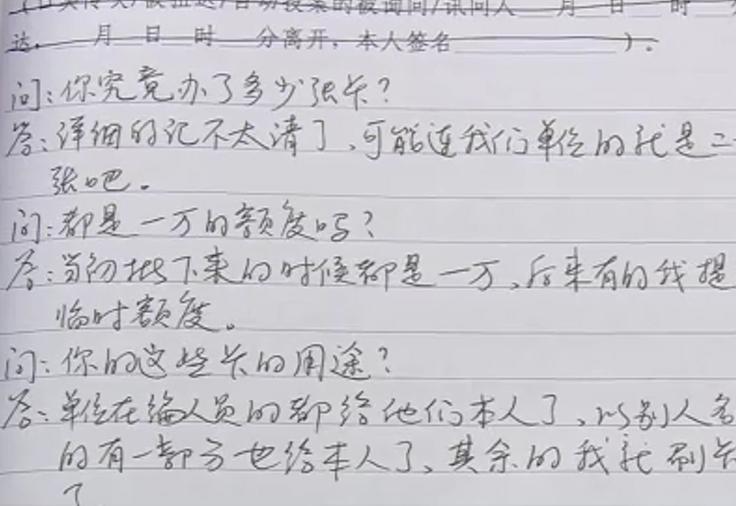 被询问/讯问人 月 日 时 分
达, 月 日 时 分离开,本人签名 )。
问:你究竟办了多少张卡?
答:详细的记不太清了,可能连我们单位的就是二
张吧。
问:都是一万的额度吗?
答:当初批下来的时候都是一万,后来有的我提
临时额度。
问:你的这些卡的用途?
答:单位在编人员的都给他们本人了,以别人名
的有一部分也给本人了,其余的我就刷卡
了